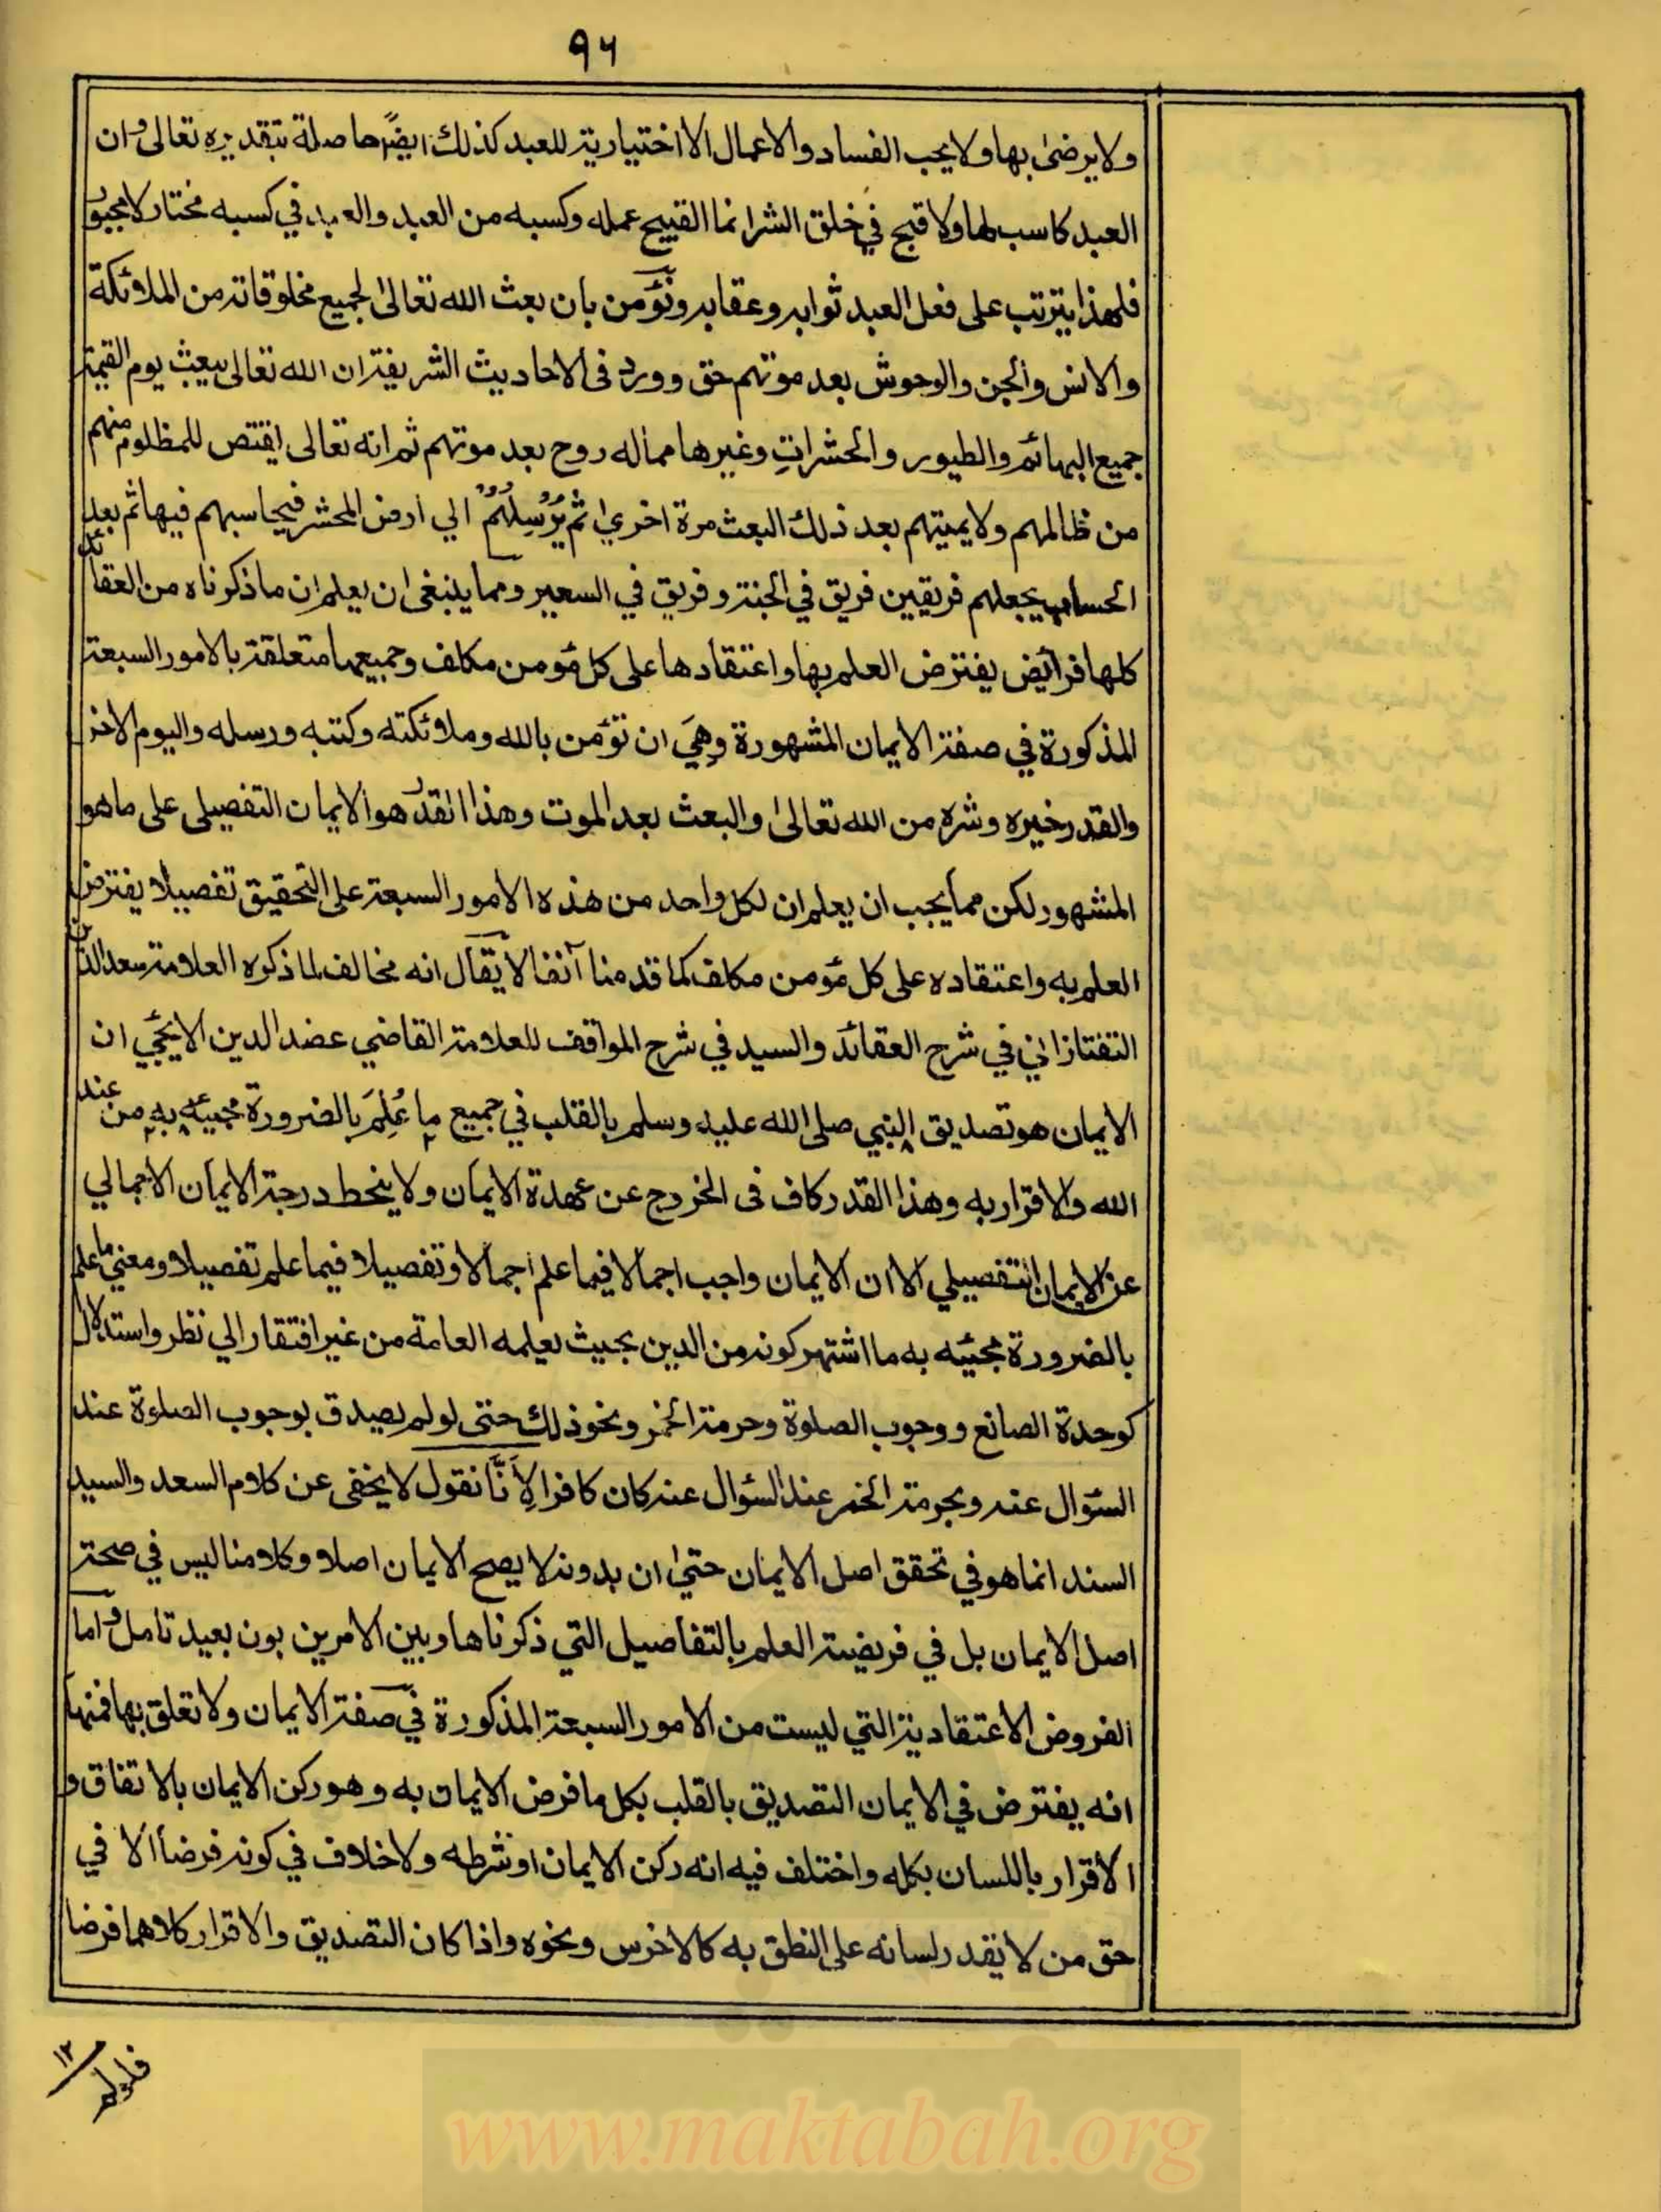 ٩٦
ولا يرضى بها ولا يحب الفساد والاعمال الاختيارية للعبد كذلك ايضًا حاصلة بتقديره تعالى وان
العبد كاسب لها ولا قبح في خلق الشر انما القبيح عمله وكسبه من العبد والعبد في كسبه مختار لا مجبور
فلهذا يترتب على فعل العبد ثوابه وعقابه ونؤمن بان بعث الله تعالى لجميع مخلوقاته من الملائكة
والانس والجن والوحوش بعد موتهم حق وورد فى الاحاديث الشريفة ان الله تعالى يبعث يوم القيمة
جميع البهائم والطيور والحشرات وغيرها مما له روح بعد موتهم ثم انه تعالى يقتص للمظلوم منهم
من ظالمهم ولا يميتهم بعد ذلك البعث مرة اخرى ثم يُرْسِلُهُمْ الي ارض المحشر فيحاسبهم فيها ثم بعد
الحساب يجعلهم فريقين فريق في الجنة وفريق في السعير ومما ينبغى ان يعلم ان ما ذكرناه من العقائد
كلها فرائض يفترض العلم بها واعتقادها على كل مؤمن مكلف وجميعها متعلقة بالامور السبعة
المذكورة في صفة الايمان المشهورة وهِيَ ان تؤمن بالله وملائكته وكتبه ورسله واليوم الاخر
والقدر خيره وشره من الله تعالى والبعث بعد الموت وهذا القدر هو الايمان التفصيلى على ما هو
المشهور لكن مما يجب ان يعلم ان لكل واحد من هذه الامور السبعة على التحقيق تفصيلا يفترض
العلم به واعتقاده على كل مؤمن مكلف كما قدمنا آنفا لا يقال انه مخالف لما ذكره العلامة سعد الدين
التفتازاني في شرح العقائد والسيد في شرح المواقف للعلامة القاضي عضد الدين الايجي ان
الايمان هو تصديق النبي صلى الله عليه وسلم بالقلب في جميع ما عُلِمَ بالضرورة مجيئه به من عند
الله والاقرار به وهذا القدر كاف فى الخروج عن عهدة الايمان ولا ينحط درجة الايمان الاجمالي
عن الايمان التفصيلي الا ان الايمان واجب اجمالا فيما علم اجمالا وتفصيلا فيما علم تفصيلا ومعنى ما علم
بالضرورة مجيئه به ما اشتهر كونه من الدين بحيث يعلمه العامة من غير افتقار الي نظر واستدلال
كوحدة الصانع ووجوب الصلوة وحرمة الخمر ونحو ذلك حتى لو لم يصدق بوجوب الصلوة عند
السؤال عنه وبحرمة الخمر عند السؤال عنه كان كافرا لِأَنَّا نقول لا يخفى عن كلام السعد والسيد
السند انما هو في تحقق اصل الايمان حتى ان بدونه لا يصح الايمان اصلا وكلامنا ليس في صحة
اصل الايمان بل في فريضية العلم بالتفاصيل التي ذكرناها وبين الامرين بون بعيد تامل واما
الفروض الاعتقادية التي ليست من الامور السبعة المذكورة في صفة الايمان ولا تعلق بها فمنها
انه يفترض في الايمان التصديق بالقلب بكل ما فرض الايمان به وهو ركن الايمان بالاتفاق و
الاقرار باللسان بكله واختلف فيه انه ركن الايمان او شرطه ولا خلاف في كونه فرضا الا في
حق من لا يقدر لسانه على النطق به كالاخرس ونحوه واذا كان التصديق والاقرار كلاهما فرضا
١٢
www.maktabah.org